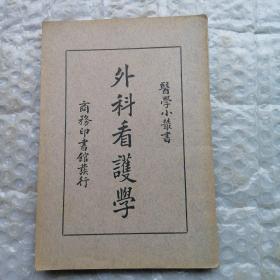 醫學小叢書
外科看護學
商務印書館發行